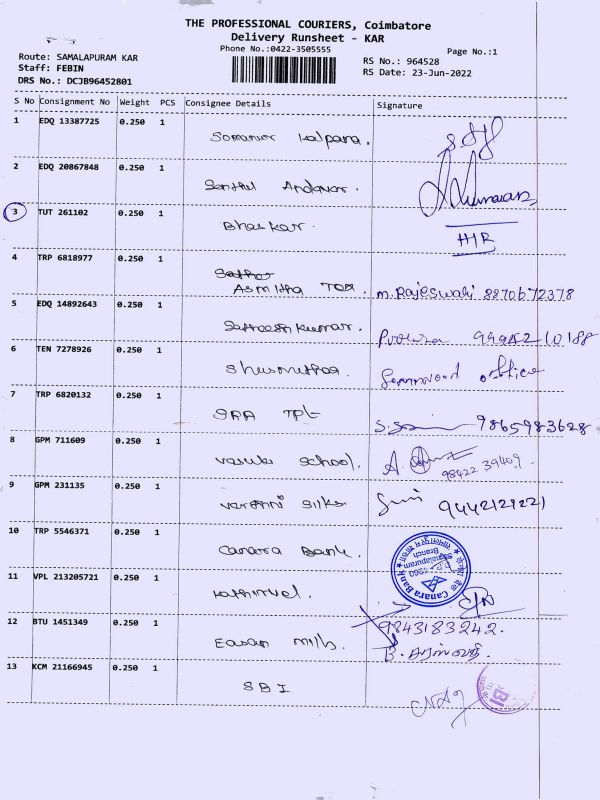 THE PROFESSIONAL COURIERS, Coimbatore
Delivery Runsheet - KAR
Phone No.:0422-3505555
Page No.:1
Route: SAMALAPURAM KAR
Staff: FEBIN
DRS No.: DCJB96452801
RS No.: 964528
RS Date: 23-Jun-2022
S No Consignment No Weight PCS Consignee Details Signature
1 EDQ 13387725 0.250 1 Kalpana.
2 EDQ 20867848 0.250 1 Senthil Andavar. Kumaran
3 TUT 261102 0.250 1 Bhaskar. H/R
4 TRP 6818977 0.250 1
Asmitha Tex. M. Rajeswari 8870672378
5 EDQ 14892643 0.250 1 Satheesh kumar.
6 TEN 7278926 0.250 1 office
7 TRP 6820132 0.250 1 9865983628
8 GPM 711609 0.250 1 Vasuki School. 98422 39409.
9 GPM 231135 0.250 1 Varshni Silks
10 TRP 5546371 0.250 1 Canara Bank.
Canara Bank
Samalapuram
Branch
11 VPL 213205721 0.250 1 Kathirvel.
12 BTU 1451349 0.250 1 Easan Mills. 9843183242.
13 KCM 21166945 0.250 1 SBI
SBI